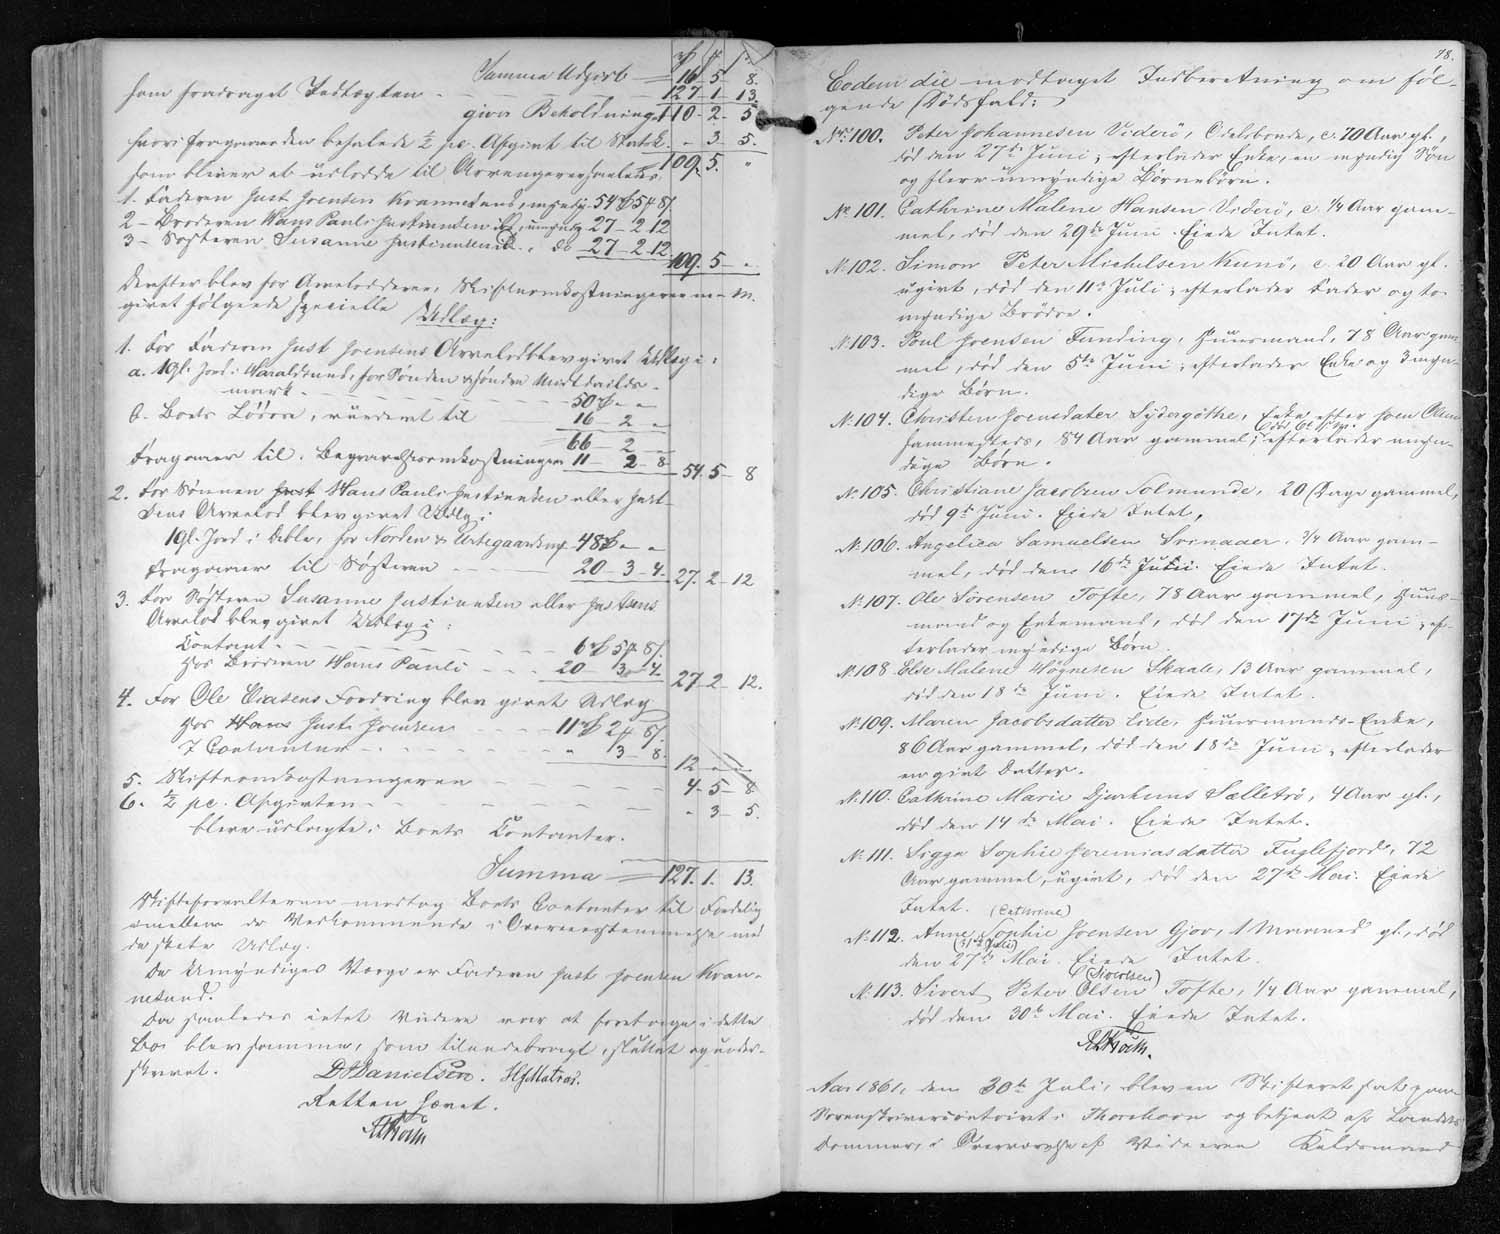 Summa Udgivt 16 5 8.
som fradraget Indtægten 127. 1. 13.
giver Beholdning 110 - 2 - 5
hvori fragaaer den befalede ½ pc. Afgivt til Statsk. " 3 - 5.
som bliver at udlodde til Arvingerne saaledes. 109. 5. "
1. Faderen Just Joensen Qvannesund, myndig 54 5 8
2 - Broderen Hans Pauli Justinussen ibd, umyndig 27 - 2 12
3 - Søsteren Susanne Justinussen do 27 - 2 12
109. 5 - "
Derefter blev for Arvelodderne, Skifteomkostningerne m-m.
givet følgende specielle Udlæg:
1. For Faderen Just Joensens Arvelod blev givet Udlæg i:
a. 1 Gl. Jord i Haraldsund, for Sønden & søndre Midtdeilds-
mark 50 " "
b. Boets Løsøre, vurderet til 16 2 "
66 2
Fragaaer til Begravelsesomkostninger 11 - 2 - 8 54. 5 - 8
2. For Sønnen Just Hans Pauli Justinussen eller Just-
sens Arvelod blev givet Udlæg i
1 Gl. Jord i Deble, for Norden & Urtegaarden 48 " "
fragaaer til Søsteren 20 - 3 - 4. 27. 2 - 12
3. For Søsteren Susanne Justinussen eller Justsens
Arvelod blev givet Udlæg i:
Contant 6 5 8
hos Broderen Hans Pauli 20 3 4 27. 2 - 12.
4. For Ole Fordring blev givet Udlæg
hos Hans Just Joensen 11 2 8
I Contanter " 3 - 8. 12 " "
5. Skifteomkostningerne 4 - 5 - 8
6. ½ pc. Afgivten " 3 - 5.
bleve udlagte i Boets Contanter.
Summa 127. 1. 13.
Skifteforvalteren modtog Boets Contanter til Fordeling
imellem de Vedkommende i Overeensstemmelse med
de skete Udlæg.
De Umyndiges Værge er Faderen Just Joensen Kvan-
nesund.
Da saaledes intet Videre var at foretage i dette
Bo blev samme, som tilendebragt, sluttet og under-
skrevet.
DDanielsen. HMatras.
Retten hævet.
HKoth
78.
Eodem die modtaget Indberetning om føl-
gende Dødsfald:
No. 100. Peter Johannesen Viderö, Odelsbonde, c. 70 Aar gl.,
død den 27de Juni; efterlader Enke, en myndig Søn
og flere umyndige Børnebørn.
No. 101. Cathrine Malene Hansen Viderö, c. ¼ Aar gam-
mel, død den 29de Juni. Eiede Intet.
No. 102. Simon Peter Michelsen Kunö, c. 20 Aar gl.
ugivt, død den 11te Juli; efterlader Fader og to
myndige Brødre.
No. 103. Poul Joensen Funding, Huusmand, 78 Aar gam-
mel, død den 5te Juni; efterlader Enke og 3 myn-
dige Børn.
No. 104. Christen Joensdater Sydergöthe, Enke efter Joen Olsen
sammesteds, 84 Aar gammel; efterlader myn-
dige Børn.
No. 105. Christiane Jacobsen Solmunde, 20 Dage gammel,
død 9de Juni. Eiede Intet,
No. 106. Angelica Samuelsen Svinaaer. ¾ Aar gam-
mel, død den 16de Juni. Eiede Intet.
No. 107. Ole Sörensen Tofte, 78 Aar gammel, Huus-
mand og Enkemand, død den 17de Juni; ef-
terlader myndige Børn.
No. 108 Else Malene Högnesen Skaale, 13 Aar gammel,
død den 18de Juni. Eiede Intet.
No. 109. Maren Jacobsdatter Eide, Huusmands-Enke,
86 Aar gammel, død den 18de Juni; efterlader
en givt Datter.
No. 110. Cathrine Marie Djurhuus Selletrö, 4 Aar gl.,
død den 14de Mai. Eiede Intet.
No. 111. Sigga Sophie Jeremiasdatter Fuglefjord, 72
Aar gammel, ugivt, død den 27de Mai. Eiede
Intet.
(Cathrine)
No. 112. Anne Sophie Joensen Gjov, 1 Maaned gl., død
(31te Juli)
den 27de Mai. Eiede Intet.
(Sivertsen)
No. 113. Sivert Peter Olsen Tofte, ¼ Aar gammel,
død den 30te Mai. Eiede Intet.
HKoth.
Aar 1861, den 30te Juli, blev en Skifteret sat paa
Sorenskrivercontoiret i Thorshavn og betjent af Landets
Dommer, i Overværelse af Viderne Kuldsmand